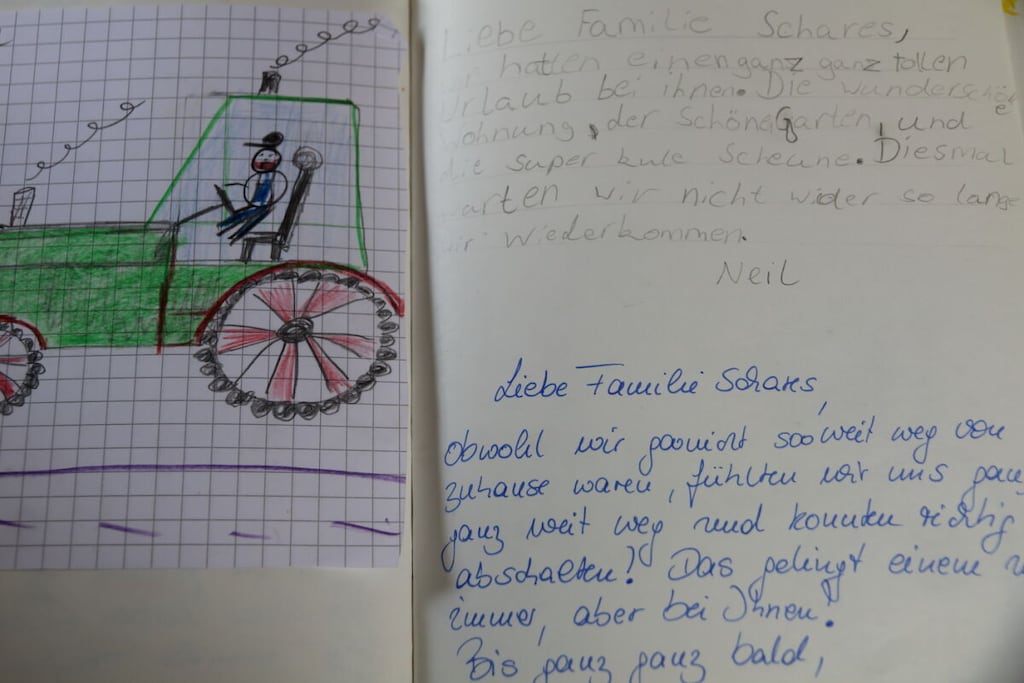 Liebe Familie Schares,
hatten einen ganz ganz tollen
Urlaub bei ihnen. Die wundersch
Wohnung, der Schöne Garten, und
die super kule Scheune. Diesmal
warten wir nicht wider so lange
wir wiederkommen.
Neil
Liebe Familie Schares,
obwohl wir garnicht soo weit weg von
zuhause waren, fühlten wir uns ganz
ganz weit weg und konnten richtig
abschalten! Das gelingt einem
immer, aber bei Ihnen!
Bis ganz ganz bald,